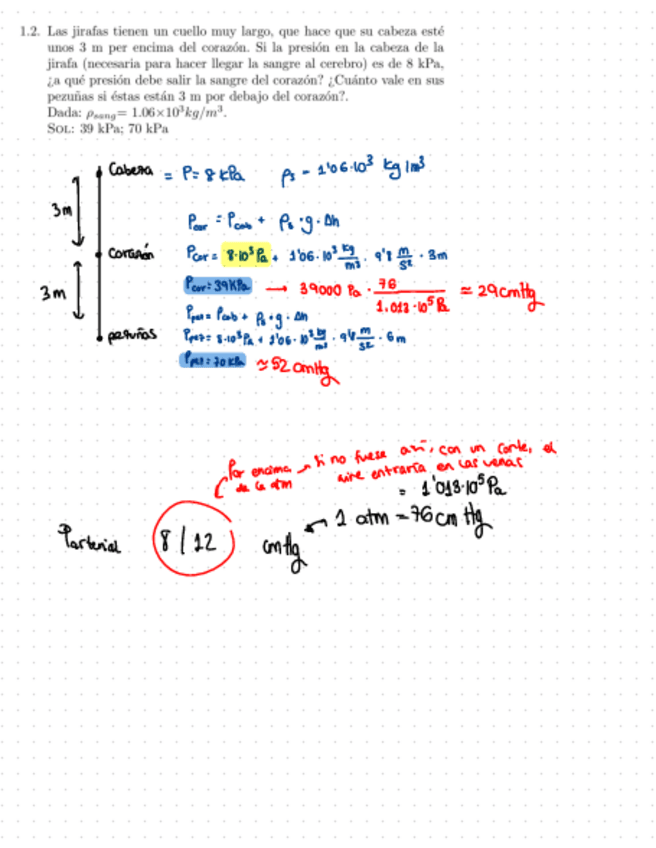 1.2. Las jirafas tienen un cuello muy largo, que hace que su cabeza esté
unos 3 m per encima del corazón. Si la presión en la cabeza de la
jirafa (necesaria para hacer llegar la sangre al cerebro) es de 8 kPa,
¿a qué presión debe salir la sangre del corazón? ¿Cuánto vale en sus
pezuñas si éstas están 3 m por debajo del corazón?.
Dada: ρsang= 1.06×10³kg/m³.
SOL: 39 kPa; 70 kPa
Cabeza = P= 8 kPa ρs = 1'06·10³ kg/m³
3m
Pcor = Pcab + ρs·g·Δh
corazón Pcor = 8·10³ Pa + 1'06·10³ kg/m³ · 9'8 m/s² · 3m
3m Pcor = 39 kPa → 39000 Pa · 76/1.013·10⁵ Pa ≃ 29 cmHg
Ppez = Pcab + ρs·g·Δh
pezuñas Ppez = 8·10³ Pa + 1'06·10³ kg/m³ · 9'8 m/s² · 6m
Ppez = 70 kPa ≃ 52 cmHg
Por encima de la atm → Si no fuese así, con un corte, el
aire entraría en las venas
= 1'013·10⁵ Pa
Parterial 8/12 cmHg 1 atm = 76 cm Hg